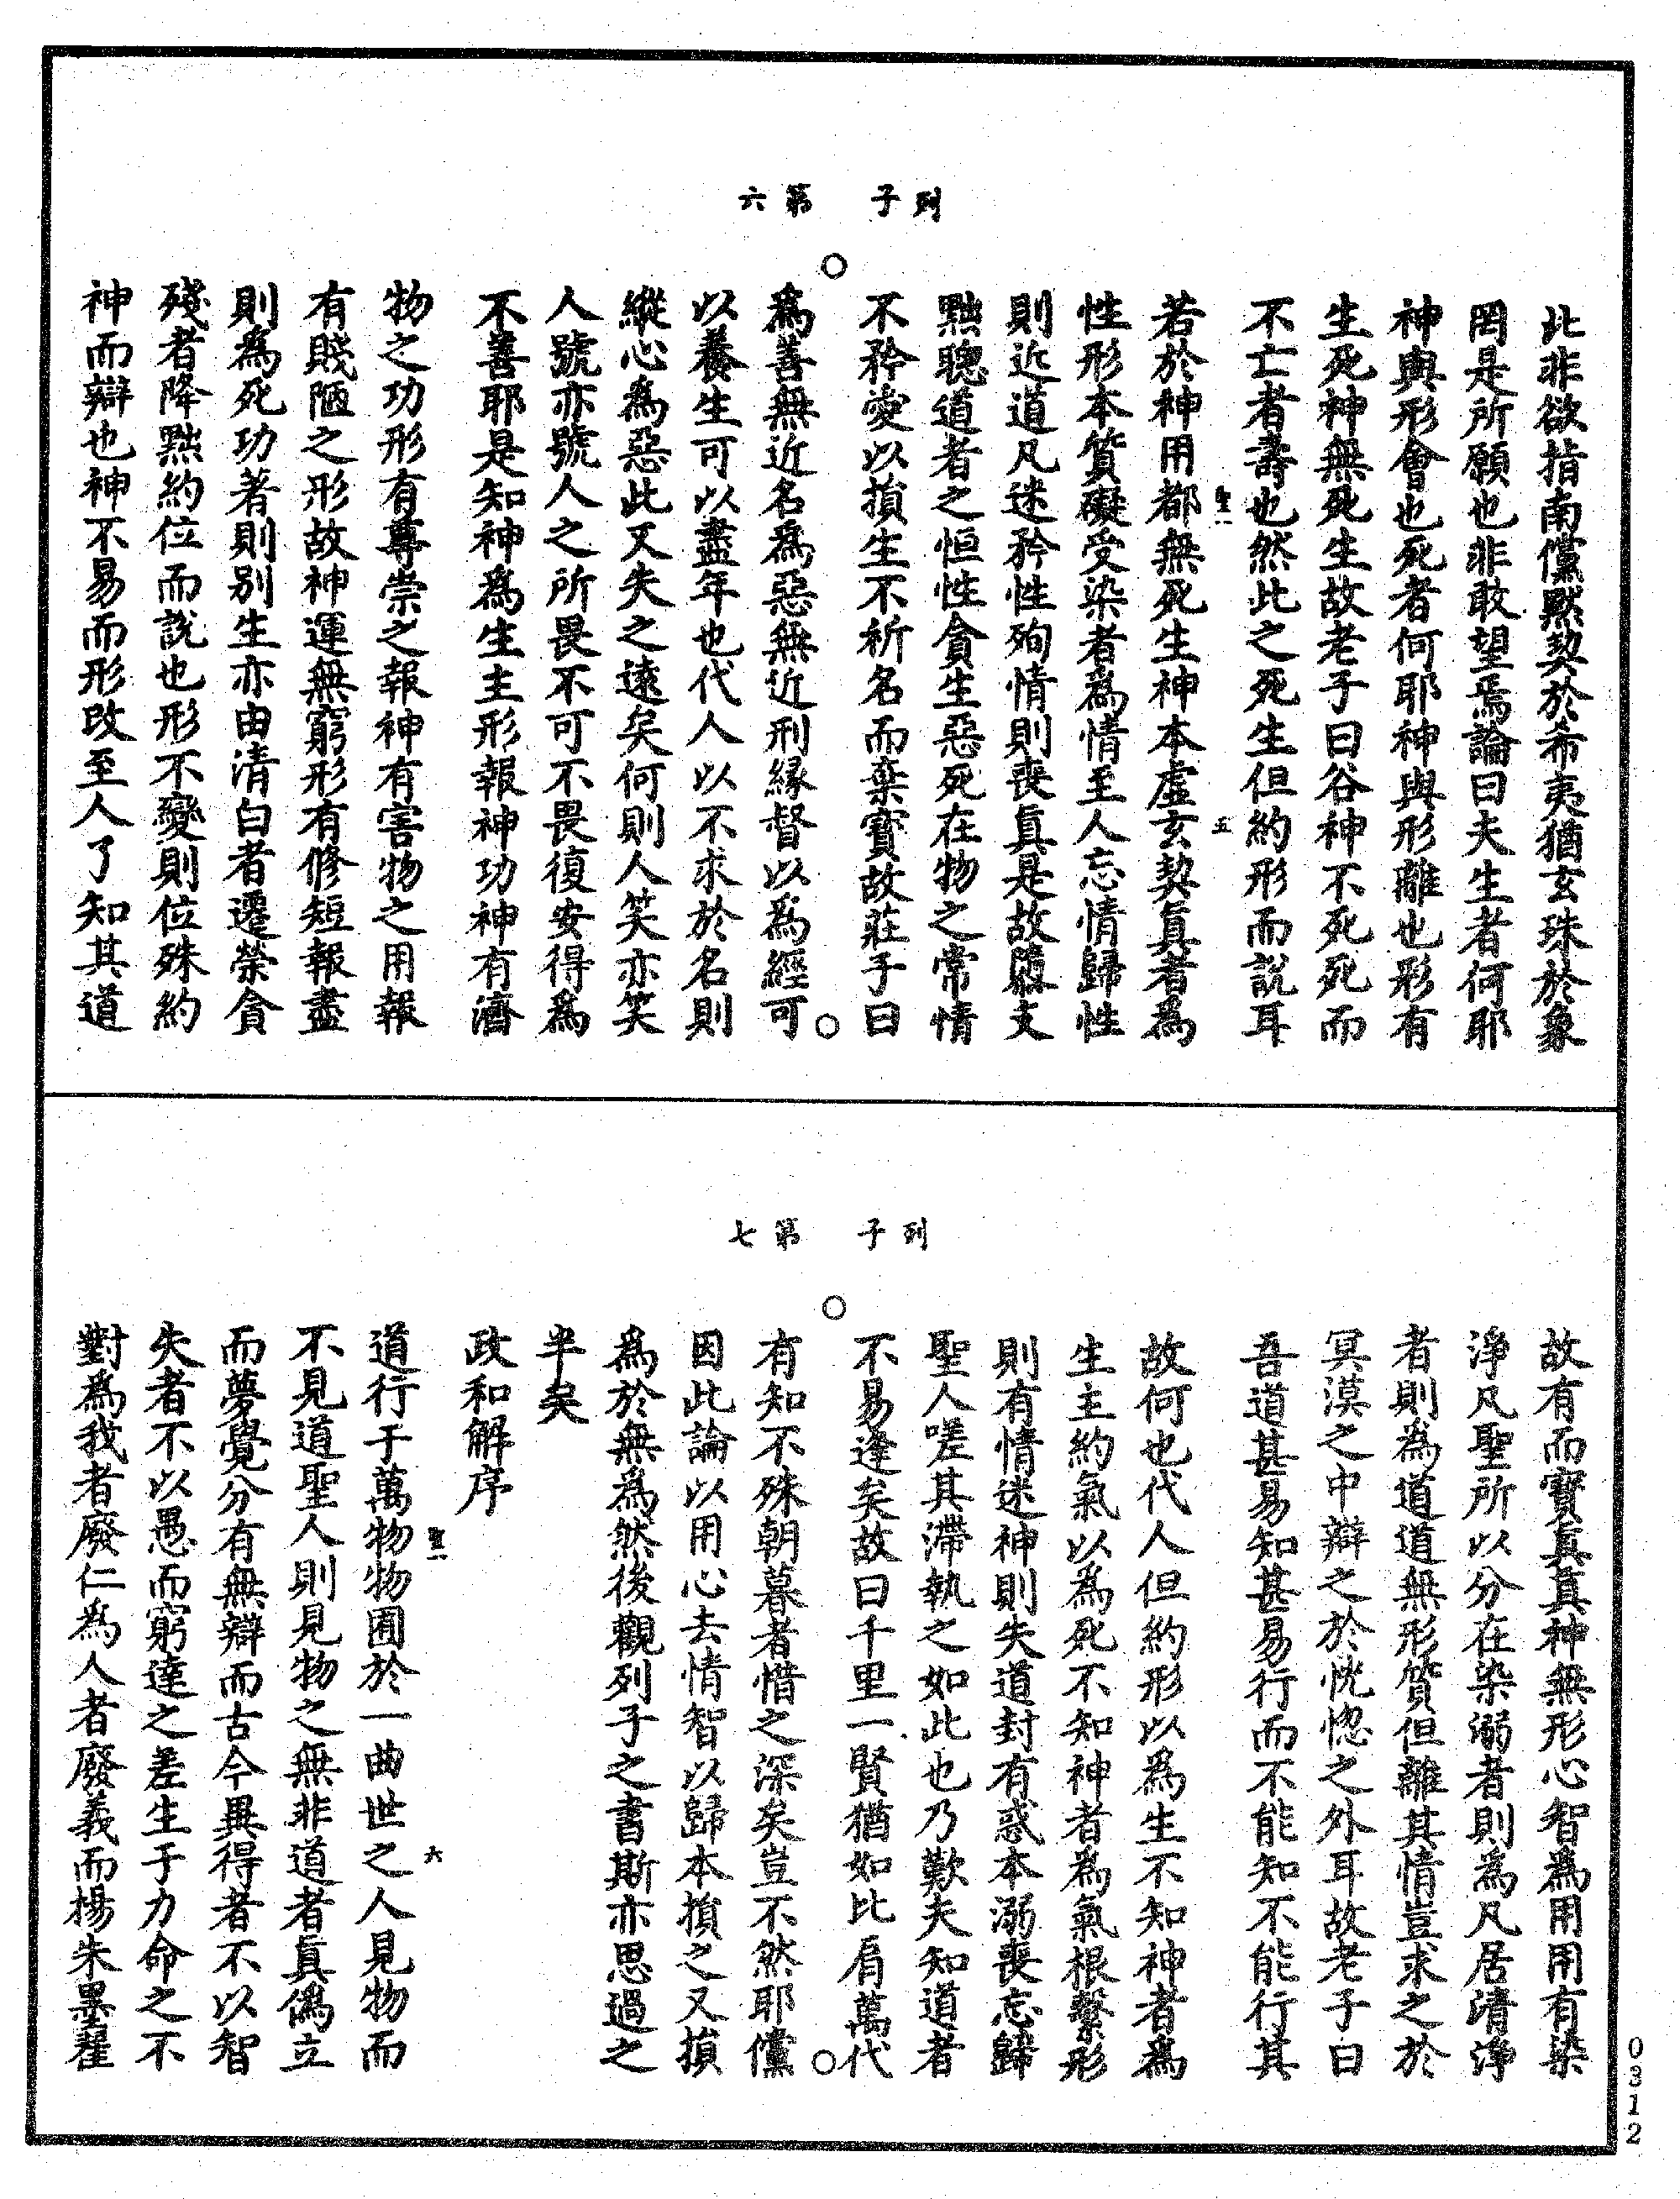 列子　第六
此非欲指南儻默契於希夷猶玄珠於象
罔是所願也非敢望焉論曰夫生者何耶
神與形會也死者何耶神與形離也形有
生死神無死生故老子曰谷神不死死而
不亡者壽也然此之死生但約形而説耳
聖一　五
若於神用都無死生神本虛玄契真者為
性形本質礙受染者為情至人忘情歸性
則近道凡迷矜性殉情則喪真是故隳支
黜聰道者之恒性貪生惡死在物之常情
不矜愛以損生不祈名而棄寶故莊子曰
為善無近名為惡無近刑緣督以為經可
以養生可以盡年也代人以不求於名則
縱心為惡此又失之遠矣何則人笑亦笑
人號亦號人之所畏不可不畏復安得為
不善耶是知神為生主形報神功神有濟
物之功形有尊崇之報神有害物之用報
有賤陋之形故神運無窮形有修短報盡
則為死功著則別生亦由清白者遷榮貪
殘者降黜約位而説也形不變則位殊約
神而辯也神不易而形改至人了知其道
列子　第七
故有而寶真真神無形心智為用用有染
淨凡聖所以分在染溺者則為凡居清淨
者則為道道無形質但離其情豈求之於
冥漠之中辯之於恍惚之外耳故老子曰
吾道甚易知甚易行而不能知不能行其
故何也代人但約形以為生不知神者為
生主約氣以為死不知神者為氣根繫形
則有情迷神則失道封有惑本溺喪忘歸
聖人嗟其滯執之如此也乃歎夫知道者
不易逢矣故曰千里一賢猶如比肩萬代
有知不殊朝暮者惜之深矣豈不然耶儻
因此論以用心去情智以歸本損之又損
為於無為然後觀列子之書斯亦思過之
半矣
政和解序
聖一　六
道行于萬物物囿於一曲世之人見物而
不見道聖人則見物之無非道者真偽立
而夢覺分有無辯而古今異得者不以智
失者不以愚而窮達之差生于力命之不
對為我者廢仁為人者廢義而楊朱墨翟
0312